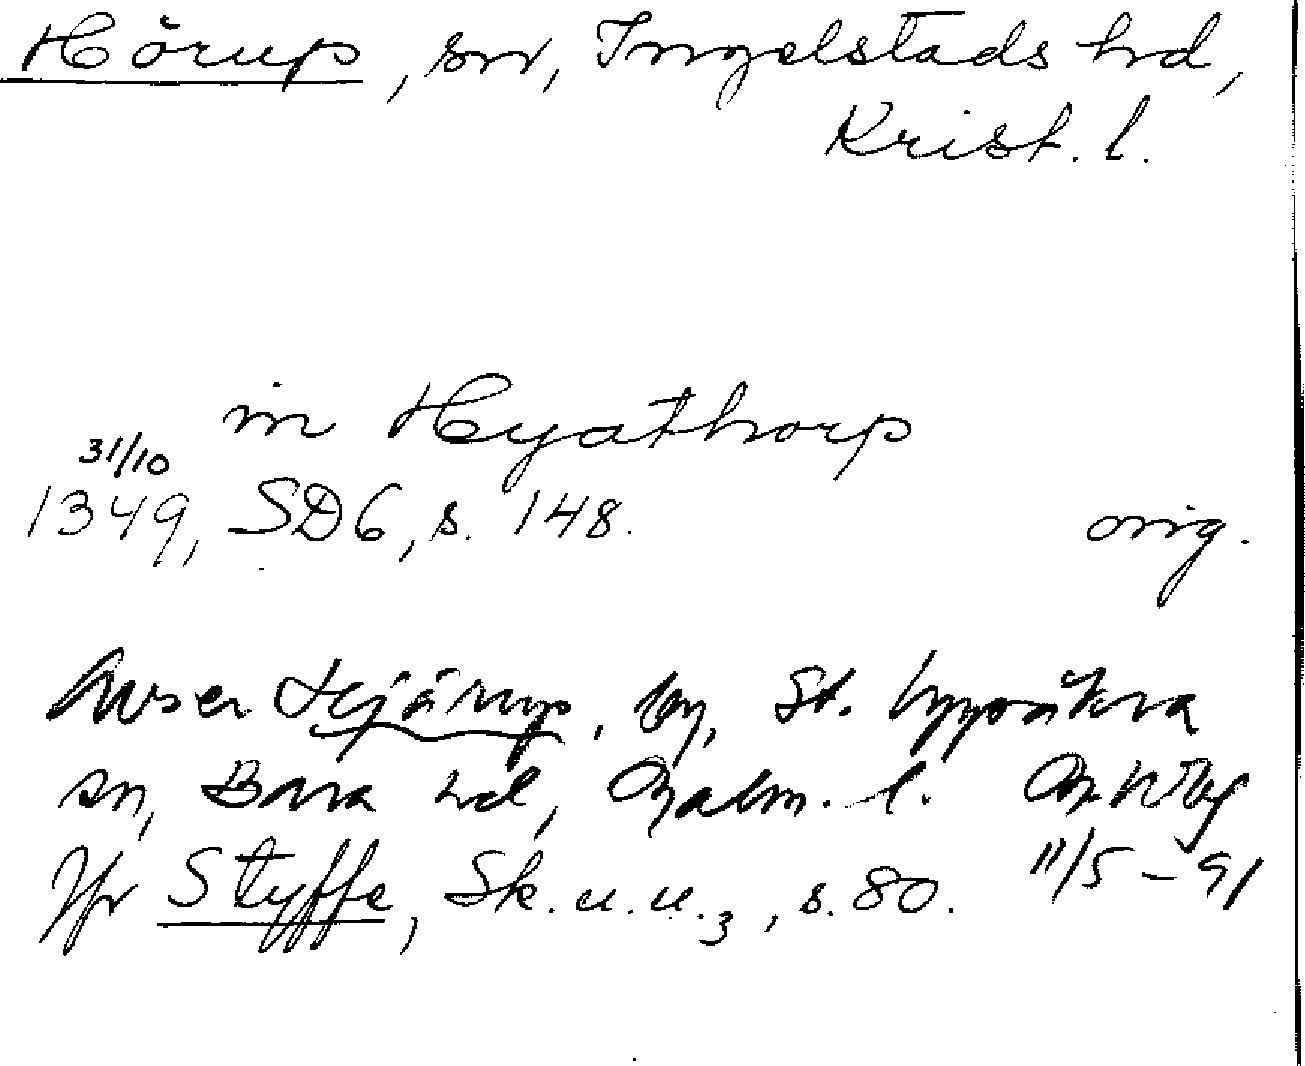 Hörup, sn, Ingelstads hd,
Krist. l.
in Hyathorp
31/10
1349, SD6, s. 148. orig.
Avser Hjärup, by, St. Uppåkra
sn, Bara hd, Malm. l.
11/5-91
Jfr Styffe, Sk. u. u.3, s. 80.